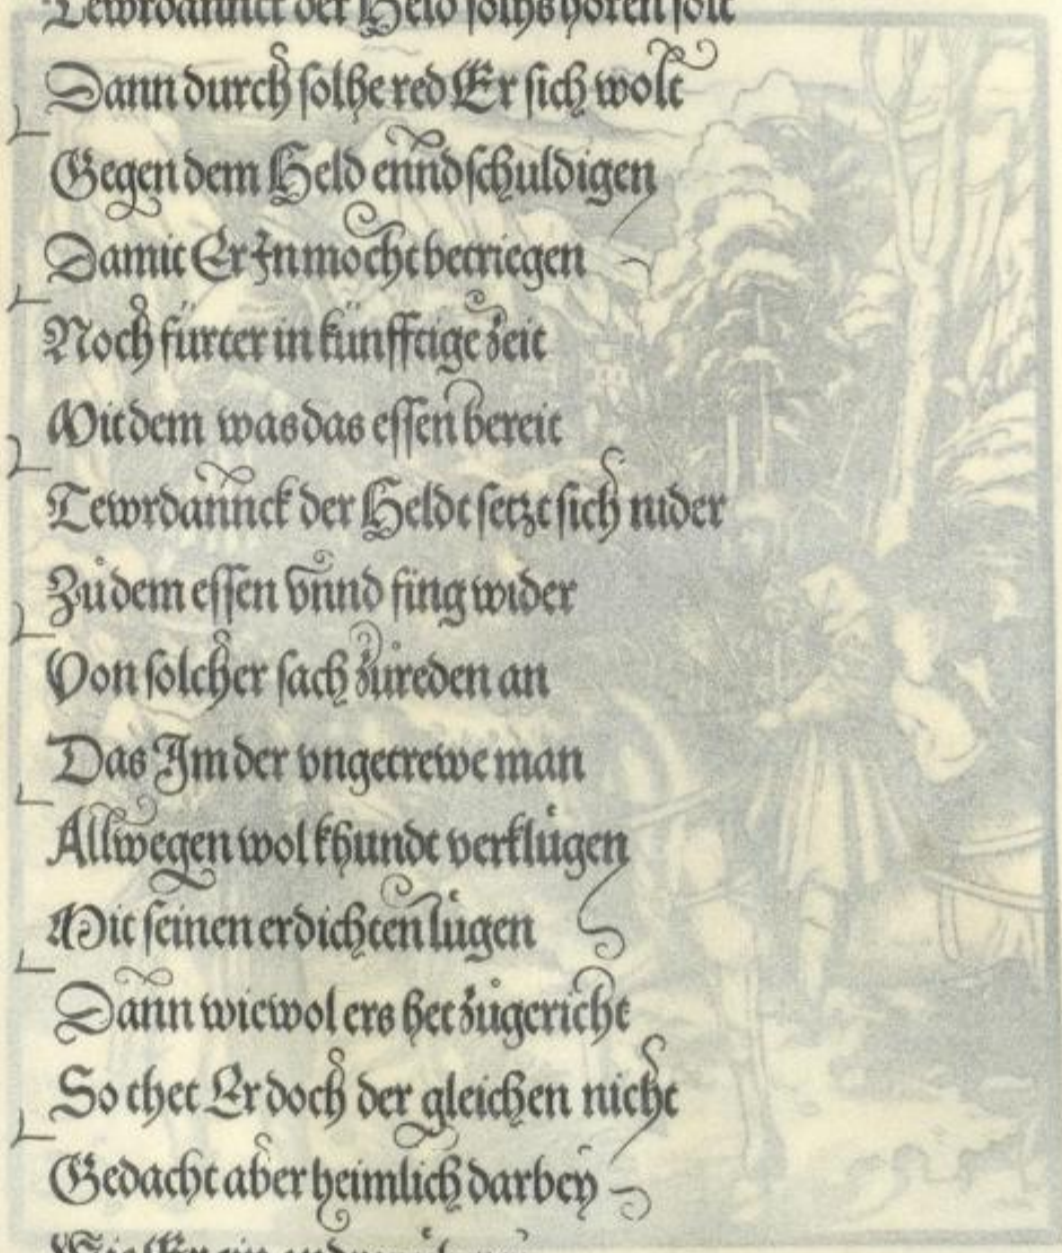 Tewrdannck der Held solhs hören solt
Dann durch solhe red Er sich wolt
Gegen dem Held enndschuldigen
Damit Er In möcht betriegen
Noch fürter in künfftige zeit
Mit dem was das essen bereit
Tewrdannck der Heldt setzt sich nider
Zů dem essen vnnd fing wider
Von solcher sach zůreden an
Das Im der vngetrewe man
Allwegen wol khundt verklůgen
Mit seinen erdichten lůgen
Dann wiewol ers het zůgericht
So thet Er doch der gleichen nicht
Gedacht aber heimlich darbey